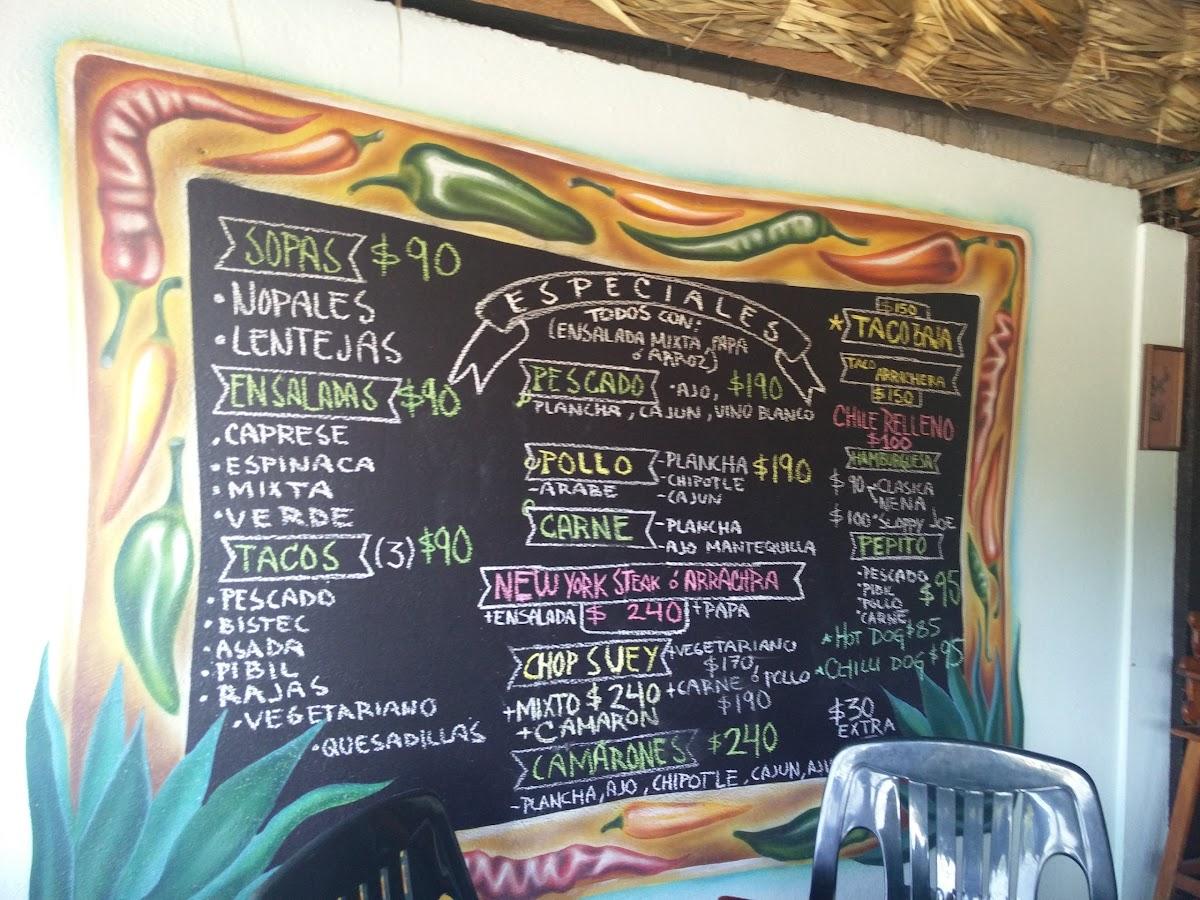 SOPAS $90
• NOPALES
• LENTEJAS
ENSALADAS $90
. CAPRESE
• ESPINACA
• MIXTA
• VERDE
TACOS (3) $90
• PESCADO
• BISTEC
• ASADA
• PIBIL
• RAJAS
• VEGETARIANO
• QUESADILLAS
ESPECIALES
TODOS CON:
(ENSALADA MIXTA, PAPA
ó ARROZ)
PESCADO • AJO, $190
PLANCHA, CAJUN, VINO BLANCO
POLLO - PLANCHA $190
- CHIPOTLE
- ARABE - CAJUN
CARNE - PLANCHA
- AJO MANTEQUILLA
NEW YORK STEAK ó ARRACHRA
+ENSALADA $ 240 + PAPA
CHOP SUEY +VEGETARIANO
$170,
+MIXTO $240 +CARNE ó POLLO
+ CAMARON $190
CAMARONES $240
- PLANCHA, AJO, CHIPOTLE, CAJUN,
$150
* TACO BAJA
TACO ARRACHERA
$150
CHILE RELLENO
$100
HAMBURGUESA
$90 - CLASICA
NENA
$100 • SLOPPY JOE
PEPITO
• PESCADO
• PIBIL $95
• POLLO
• CARNE
* HOT DOG $85
* CHILLI DOG $95
$30
EXTRA